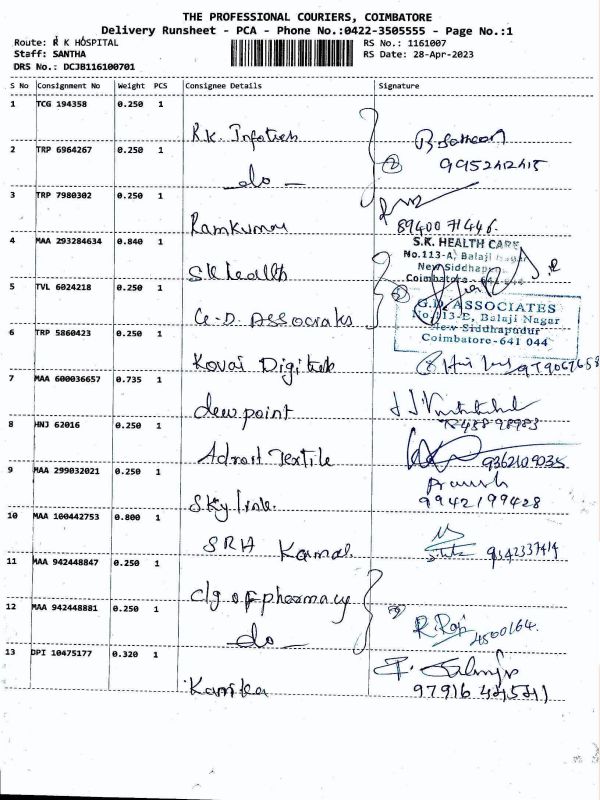 THE PROFESSIONAL COURIERS, COIMBATORE
Delivery Runsheet - PCA - Phone No.:0422-3505555 - Page No.:1
Route: R K HOSPITAL
RS No.: 1161007
Staff: SANTHA
RS Date: 28-Apr-2023
DRS No.: DCJB116100701
S No Consignment No Weight PCS Consignee Details Signature
1 TCG 194358 0.250 1
R.K. Infotech
2 TRP 6964267 0.250 1
do
3 TRP 7980302 0.250 1
Ramkumar
89400 71446.
4 MAA 293284634 0.840 1
S.K. HEALTH CARE
No.113-A, Balaji Nagar
SK health
5 TVL 6024218 0.250 1
G-D Associates
G.D. ASSOCIATES
No.113-E, Balaji Nagar
New Siddhapudur
Coimbatore-641 044
6 TRP 5860423 0.250 1
Kovai Digitek
7 MAA 600036657 0.735 1
dewpoint
8 HNJ 62016 0.250 1
Adroit Textile
9362109035
9 MAA 299032021 0.250 1
Skylink
9942199428
10 MAA 100442753 0.800 1
SRH Kamal
9342337414
11 MAA 942448847 0.250 1
clg of pharmacy
12 MAA 942448881 0.250 1
do
R. Raj
13 DPI 10475177 0.320 1
Kanika